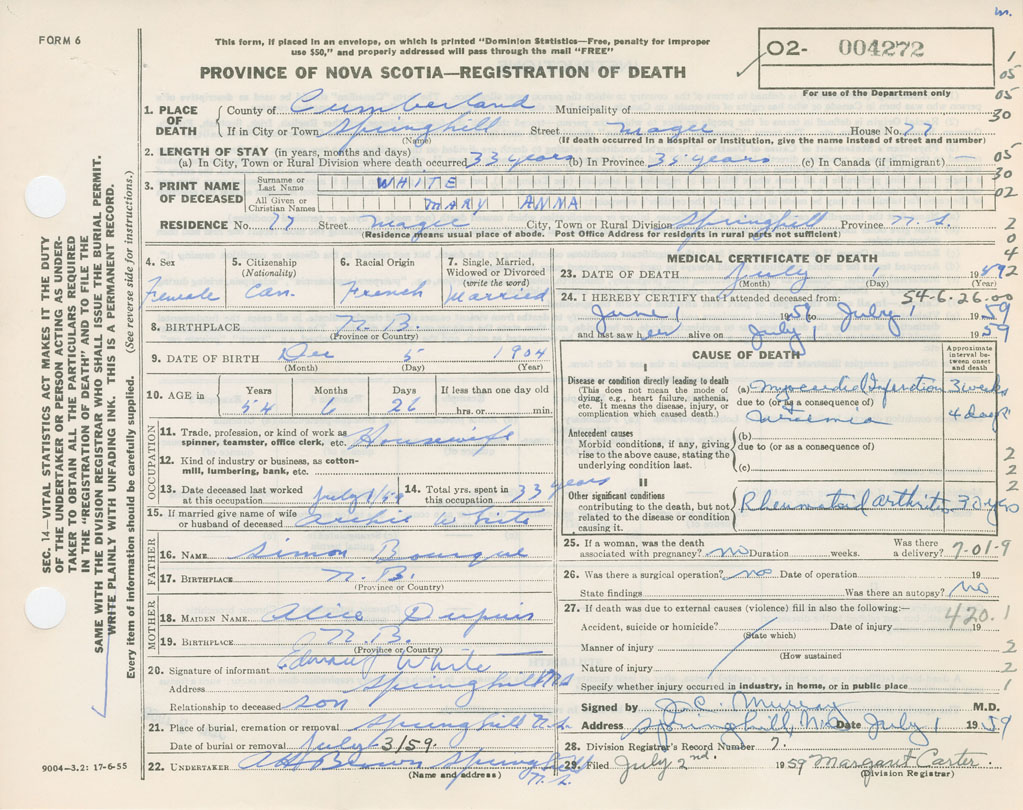 FORM 6
This form, if placed in an envelope, on which is printed "Dominion Statistics—Free, penalty for improper
use $50," and properly addressed will pass through the mail "FREE"
O2- 004272
For use of the Department only
PROVINCE OF NOVA SCOTIA—REGISTRATION OF DEATH
1. PLACE OF DEATH
County of Cumberland Municipality of
If in City or Town Springhill Street Magee House No. 77
(Name) (If death occurred in a Hospital or Institution, give the name instead of street and number)
2. LENGTH OF STAY (in years, months and days)
(a) In City, Town or Rural Division where death occurred 33 years (b) In Province 35 years (c) In Canada (if immigrant) —
3. PRINT NAME OF DECEASED
Surname or Last Name WHITE
All Given or Christian Names MARY ANNA
RESIDENCE No. 77 Street Magee City, Town or Rural Division Springhill Province N.S.
(Residence means usual place of abode. Post Office Address for residents in rural parts not sufficient)
4. Sex Female
5. Citizenship (Nationality) Can.
6. Racial Origin French
7. Single, Married, Widowed or Divorced (write the word) Married
8. BIRTHPLACE N.B.
(Province or Country)
9. DATE OF BIRTH Dec 5 1904
(Month) (Day) (Year)
10. AGE in Years 54 Months 6 Days 26 If less than one day old hrs. or min.
OCCUPATION
11. Trade, profession, or kind of work as spinner, teamster, office clerk, etc. Housewife
12. Kind of industry or business, as cotton-mill, lumbering, bank, etc.
13. Date deceased last worked at this occupation July 1/59
14. Total yrs. spent in this occupation 33 years
15. If married give name of wife or husband of deceased Archie White
FATHER
16. NAME Simon Bourque
17. BIRTHPLACE N.B.
(Province or Country)
MOTHER
18. MAIDEN NAME Alice Dupuis
19. BIRTHPLACE N.B.
(Province or Country)
20. Signature of informant Edward White
Address Springhill NS
Relationship to deceased son
21. Place of burial, cremation or removal Springhill N.S.
Date of burial or removal July 3/59.
22. UNDERTAKER Brown Springhill N.S.
(Name and address)
9004-3.2: 17-6-55
MEDICAL CERTIFICATE OF DEATH
23. DATE OF DEATH July 1 19
(Month) (Day) (Year)
54-6.26.00
24. I HEREBY CERTIFY that I attended deceased from:
June 1 1959 to July 1 1959
and last saw her alive on July 1 1959
CAUSE OF DEATH
Approximate interval between onset and death
I
Disease or condition directly leading to death
(This does not mean the mode of dying, e.g., heart failure, asthenia, etc. It means the disease, injury, or complication which caused death.)
(a) Myocardial Infarction 3 weeks
due to (or as a consequence of)
Uraemia 4 days
Antecedent causes
Morbid conditions, if any, giving rise to the above cause, stating the underlying condition last.
(b)
due to (or as a consequence of)
(c)
II
Other significant conditions
contributing to the death, but not related to the disease or condition causing it.
Rheumatoid arthritis 32 yrs
25. If a woman, was the death associated with pregnancy? no Duration weeks. Was there a delivery? 7-01-9
26. Was there a surgical operation? no Date of operation 19
State findings Was there an autopsy? No
27. If death was due to external causes (violence) fill in also the following:—
420.1
Accident, suicide or homicide? Date of injury 19
(State which)
Manner of injury
(How sustained)
Nature of injury
Specify whether injury occurred in industry, in home, or in public place
Signed by J.C. Murray M.D.
Address Springhill, N.S. Date July 1 1959
28. Division Registrar's Record Number 7.
29. Filed July 2nd. 1959 Margaret Carter
(Division Registrar)
SEC. 14—VITAL STATISTICS ACT MAKES IT THE DUTY
OF THE UNDERTAKER OR PERSON ACTING AS UNDER-
TAKER TO OBTAIN ALL THE PARTICULARS REQUIRED
IN THE "REGISTRATION OF DEATH" AND TO FILE THE
SAME WITH THE DIVISION REGISTRAR WHO SHALL ISSUE THE BURIAL PERMIT.
WRITE PLAINLY WITH UNFADING INK. THIS IS A PERMANENT RECORD.
Every item of information should be carefully supplied. (See reverse side for instructions.)
1
05
05
30
05
30
02
2
0
4
2
2
2
2
2
1
2
2
1